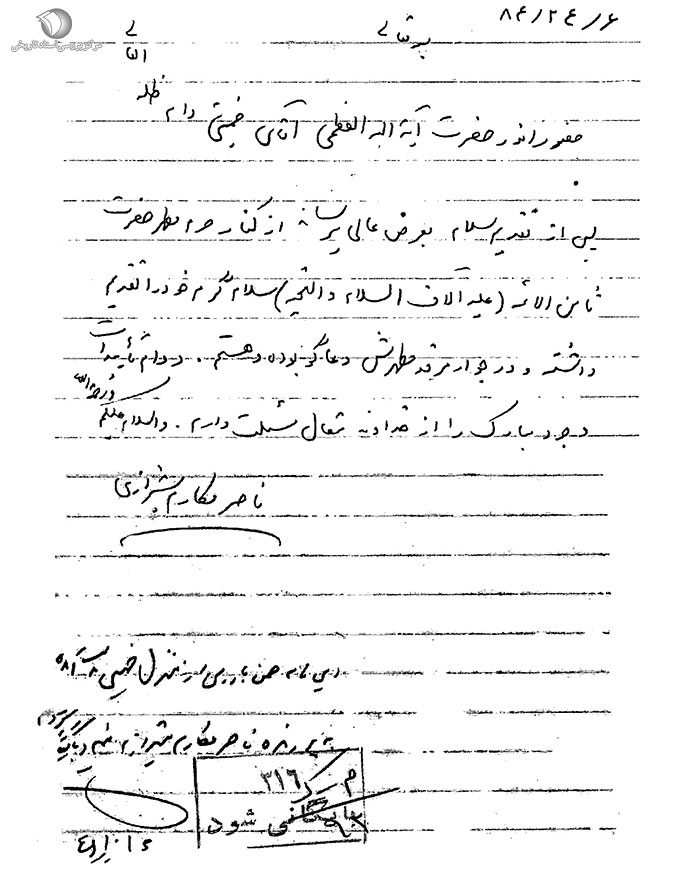 مرکز بررسی اسناد تاریخی
۸۴/۲۴/۶
بسمه تعالی
حضور انور حضرت آیة الله العظمی آقای خمینی دام ظله
پس از تقدیم سلام بعرض عالی میرساند از کنار حرم مطهر حضرت
ثامن الائمه (علیه آلاف السلام و التحیه) سلام گرم خود را تقدیم
داشته و در جوار مرقد مطهرش دعاگو بوده و هستم. دوام تأییدات
وجود مبارک را از خداوند متعال مسئلت دارم. والسلام علیکم ورحمة الله
ناصر مکارم شیرازی
این نامه ضمن بازرسی از منزل خمینی
به پرونده ناصر مکارم شیرازی
م ک ۳۱۶
بایگانی شود